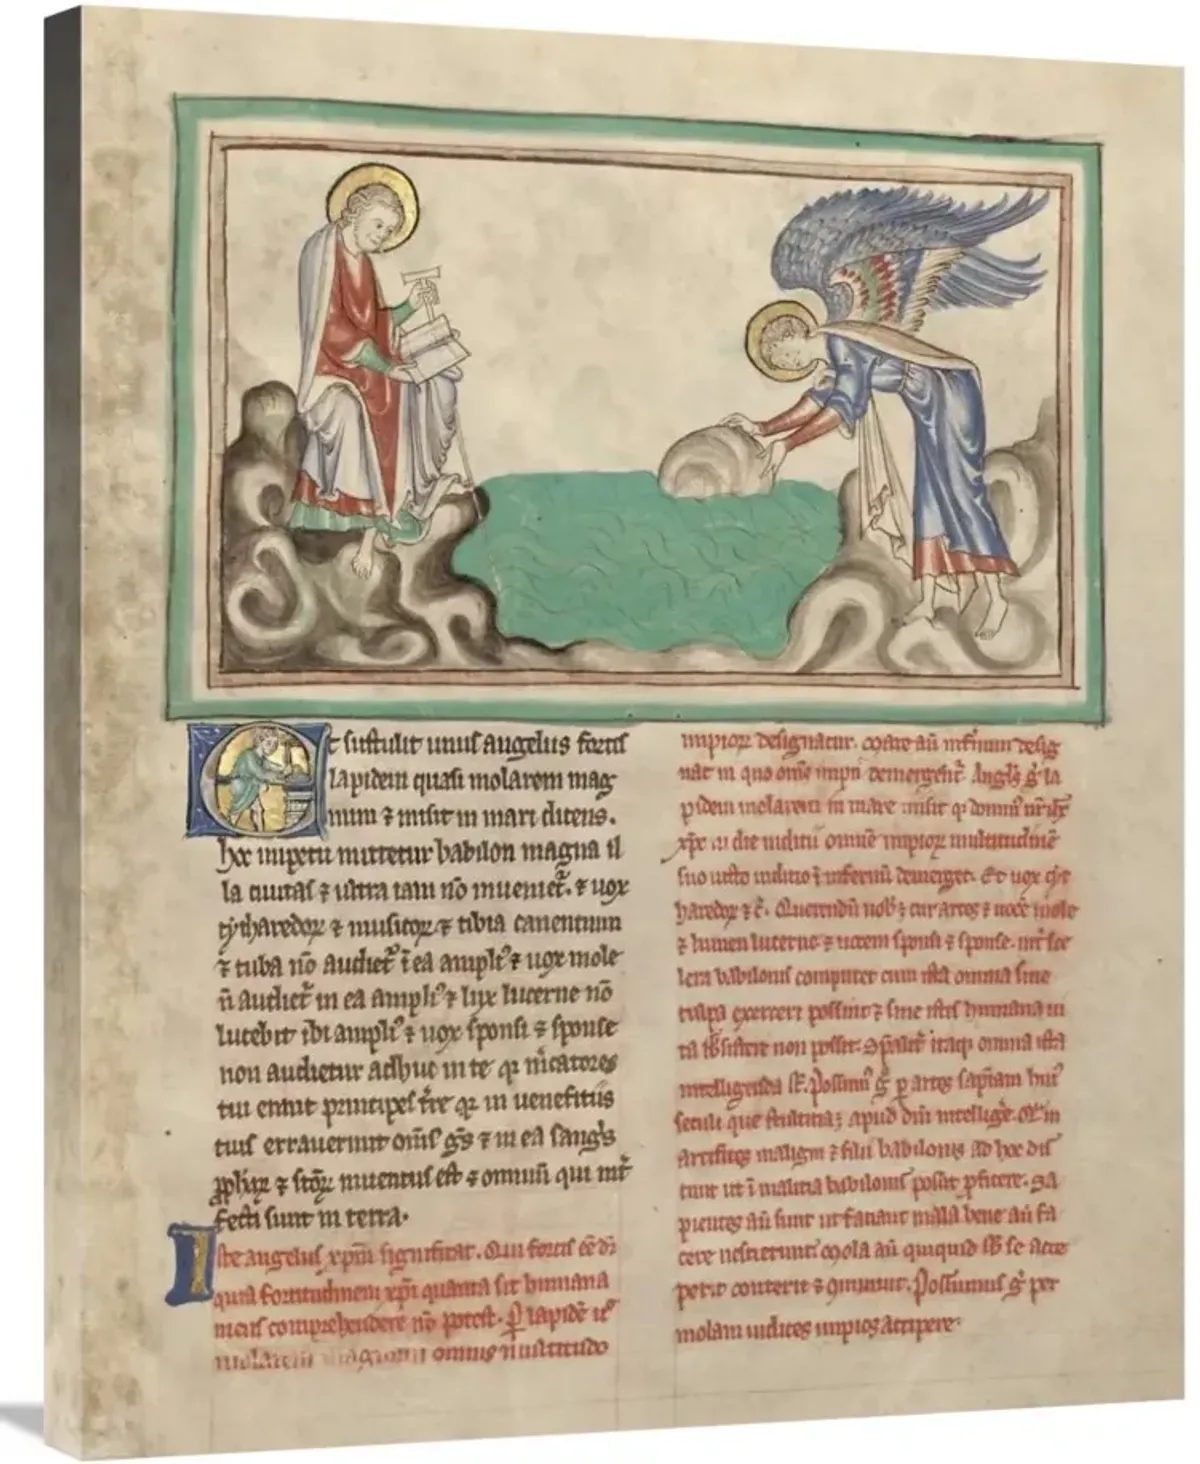 Et sustulit unus angelus fortis
lapidem quasi molarem mag
num ⁊ misit in mari dicens.
hoc impetu mittetur babilon magna il
la ciuitas ⁊ ultra iam nō inueniet᷑. ⁊ uox
cytharedoꝝ ⁊ musicoꝝ ⁊ tibia canentium
⁊ tuba nō audiet᷑ ī ea ampliꝰ ⁊ uox mole
n̄ audiet᷑ in ea ampliꝰ ⁊ lux lucerne nō
lucebit ibi ampliꝰ ⁊ uox sponsi ⁊ sponse
non audietur adhuc in te qr m̄catores
tui erant principes t̄re qr in ueneficiis
tuis errauerunt om̄s gn̄s ⁊ in ea sangˢ
ꝓphaꝝ ⁊ sc̄oꝝ inuentus est ⁊ omniū qui int᷑
fecti sunt in terra.
Iste angelus xp̄m significat. Qui fortis
quia fortitudinem xp̄i quanta sit humana
mens comprehendere nō potest. ꝑ lapidē
molarem magnum omnis multitudo
impioꝝ designatur. Mare aū infernum desig
nat in quo om̄s impii demergent᷑. Angl̄s g̊ la
pidem molarem in mare misit
in die iudicii omnē impioꝝ multitudinē
suo iusto iudicio ī infernū demerget. Et uox cyt
haredoꝝ ⁊ c̄. Querendū nob̄ ⁊ cur artes ⁊ uocē mole
⁊ lumen lucerne ⁊ uocem sponsi ⁊ sponse. int᷑ sce
lera babilonis computet cum ista omnia sine
culpa exerceri possint ⁊ sine istis humana ui
ta subsistere non possit. Sp̄alit᷑ itaqꝫ omnia ista
intelligenda st̄. Possumꝰ g̊ ꝑ artes sapiam huiꝰ
seculi que stultitia apud dm̄ intellige.
artifices maligni ⁊ filii babilonis ad hoc dis
cunt ut ī malicia babilonis possit ꝓficere. Sa
pientes aū sunt ut faciant mala bene aū fa
cere nescierunt. Mola aū quicquid sb̄ se acce
perit conterit ⁊ cominuit. Possumus g̊ per
molam iudices impios accipere.